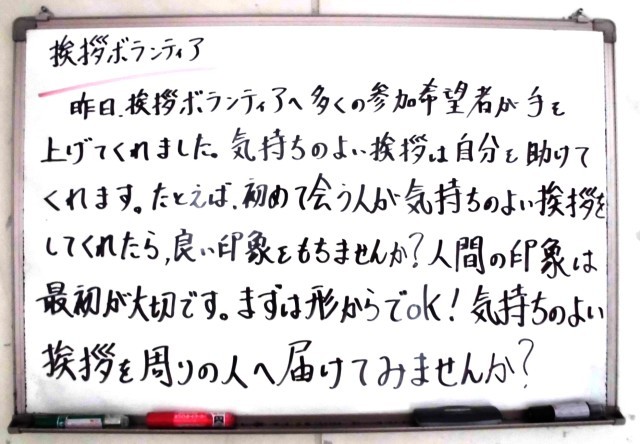 挨拶ボランティア
昨日、挨拶ボランティアへ多くの参加希望者が手を
上げてくれました。気持ちのよい挨拶は自分を助けて
くれます。たとえば、初めて会う人が気持ちのよい挨拶を
してくれたら、良い印象をもちませんか?人間の印象は
最初が大切です。まずは形からでOK!気持ちのよい
挨拶を周りの人へ届けてみませんか?